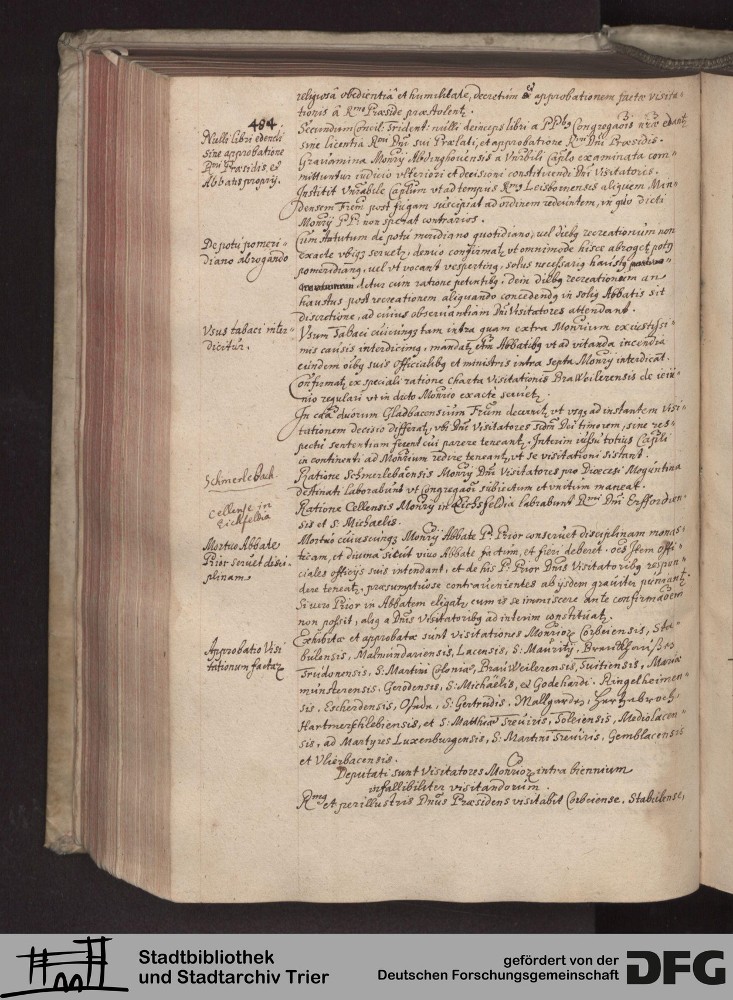 religiosâ obedientiâ et humilitate, decretum et approbationem factae visita-
tionis â Rmo Praeside praestolent.
484
Nulli libri edendi
sine approbatione
Rmi Praesidis, et
Abbatis proprij.
Secundum Concil: Trident: nulli deinceps libri a PPbus Congregaōis nr̄ae edant
sine licentia Rmi Dñi sui Praelati, et approbatione Rmi Dñi Praesidis.
Gravamina Monrij Abdinghovensis a Vnrbili Caplo examinata com-
mittuntur iudicio ulteriori et decisioni constituendi Dñi Visitatoris.
Institit Vnrabile Caplum vt ad tempus Rmus Leisbornensis aliquem Man-
densem Frem post fugam suscipiat ad ordinem redeuntem, in quo dicti
Monrij PP: non sperat contrarios.
De potu pomeri-
diano abrogando
Cum statutum de potu meridiano quotidiano, vel diebus recreationum non
exacte ubique servetur, denuo confirmat, vt omnimode hisce abrogetur potus
pomeridianus, vel vt vocant vespertinus. solus necessarius haustus
detur cum ratione petentibus. dein diebus recreationum an
haustus post recreationem aliquando concedendus in solius Abbatis sit
discretione, ad cuius observantiam Dñi Visitatores attendant.
Vsus tabaci inter-
dicitur.
Vsum Tabaci cuiuscunque tam intra quam extra Monrium ex iustissi-
mis causis interdicimus, mandatur etm Abbatibus vt ad vitanda incendia
eundem oibus suis officialibus et ministris intra septa Monrij interdicat.
Confirmatur ex speciali ratione charta Visitationis BraWeilerensis de ieiu-
nio regulari vt in dicto Monrio exacte servetur.
In causa duorum Gladbacensium Frum decernitur, vt usque ad instantem Visi-
tationem decisio differatur, vbi Dñi Visitatores secundum Dei timorem, sine res-
pectu sententiam ferent cui parere teneantur. Interim iussu totius Capli
in continenti ad Monrium redire teneantur, vt se visitationi sistant.
Schmerlebach.
Ratione Schmerlebacensis Monrij Dñi Visitatores pro Dioecesi Moguntina
destinati laborabunt vt Congregaōi subiectum et unitum maneat.
Cellense in
Eichsfeldia
Ratione Cellensis Monrij in Eichsfeldia laborabunt Rmi Dñi Erffordien-
sis et S: Michaelis.
Mortuo Abbate
Prior servet disci-
plinam.
Mortuo cuiuscunque Monrij Abbate P: Prior conservet disciplinam monas-
ticam, et divina sicut vivo Abbate factum, et fieri deberet. oēs item offi-
ciales officijs suis intendant, et de his P: Prior Dnis Visitatoribus respon-
dere teneatur, praesumptuose contravenientes ab ijsdem graviter puniantur.
Si vero Prior in Abbatem eligatur, cum is se immiscere ante confirmaōem
non possit, alius a Dnis Visitatoribus ad interim constituatur.
Approbatio Visi-
tationum factarum
Exhibitae et approbatae sunt visitationes Monriorum Corbeiensis, Sta-
bulensis, Malmundariensis, Lacensis, S: Mauritij,
Trudonensis, S: Martini Coloniae, BrauWeilerensis, Tuitiensis, Mariae
munsterensis, Gerodensis, S: Michaëlis, et Godehardi, Ringelheimen-
sis, Escherdensis, S: Gertrudis, Mallgarden, Hertzabroch,
Hartmerschlebiensis, et S: Matthiae Treviris, Toleiensis, Mediolacen-
sis, ad Martyres Luxenburgensis, S: Martini Treviris, Gemblacensis
et Vlierbacensis.
Deputati sunt Visitatores Monriorum intra biennium
infallibiliter visitandorum.
Rmus et perillustris Dnus Praesidens visitabit Corbeiense, Stabulense,
Stadtbibliothek
und Stadtarchiv Trier
gefördert von der
Deutschen Forschungsgemeinschaft
DFG